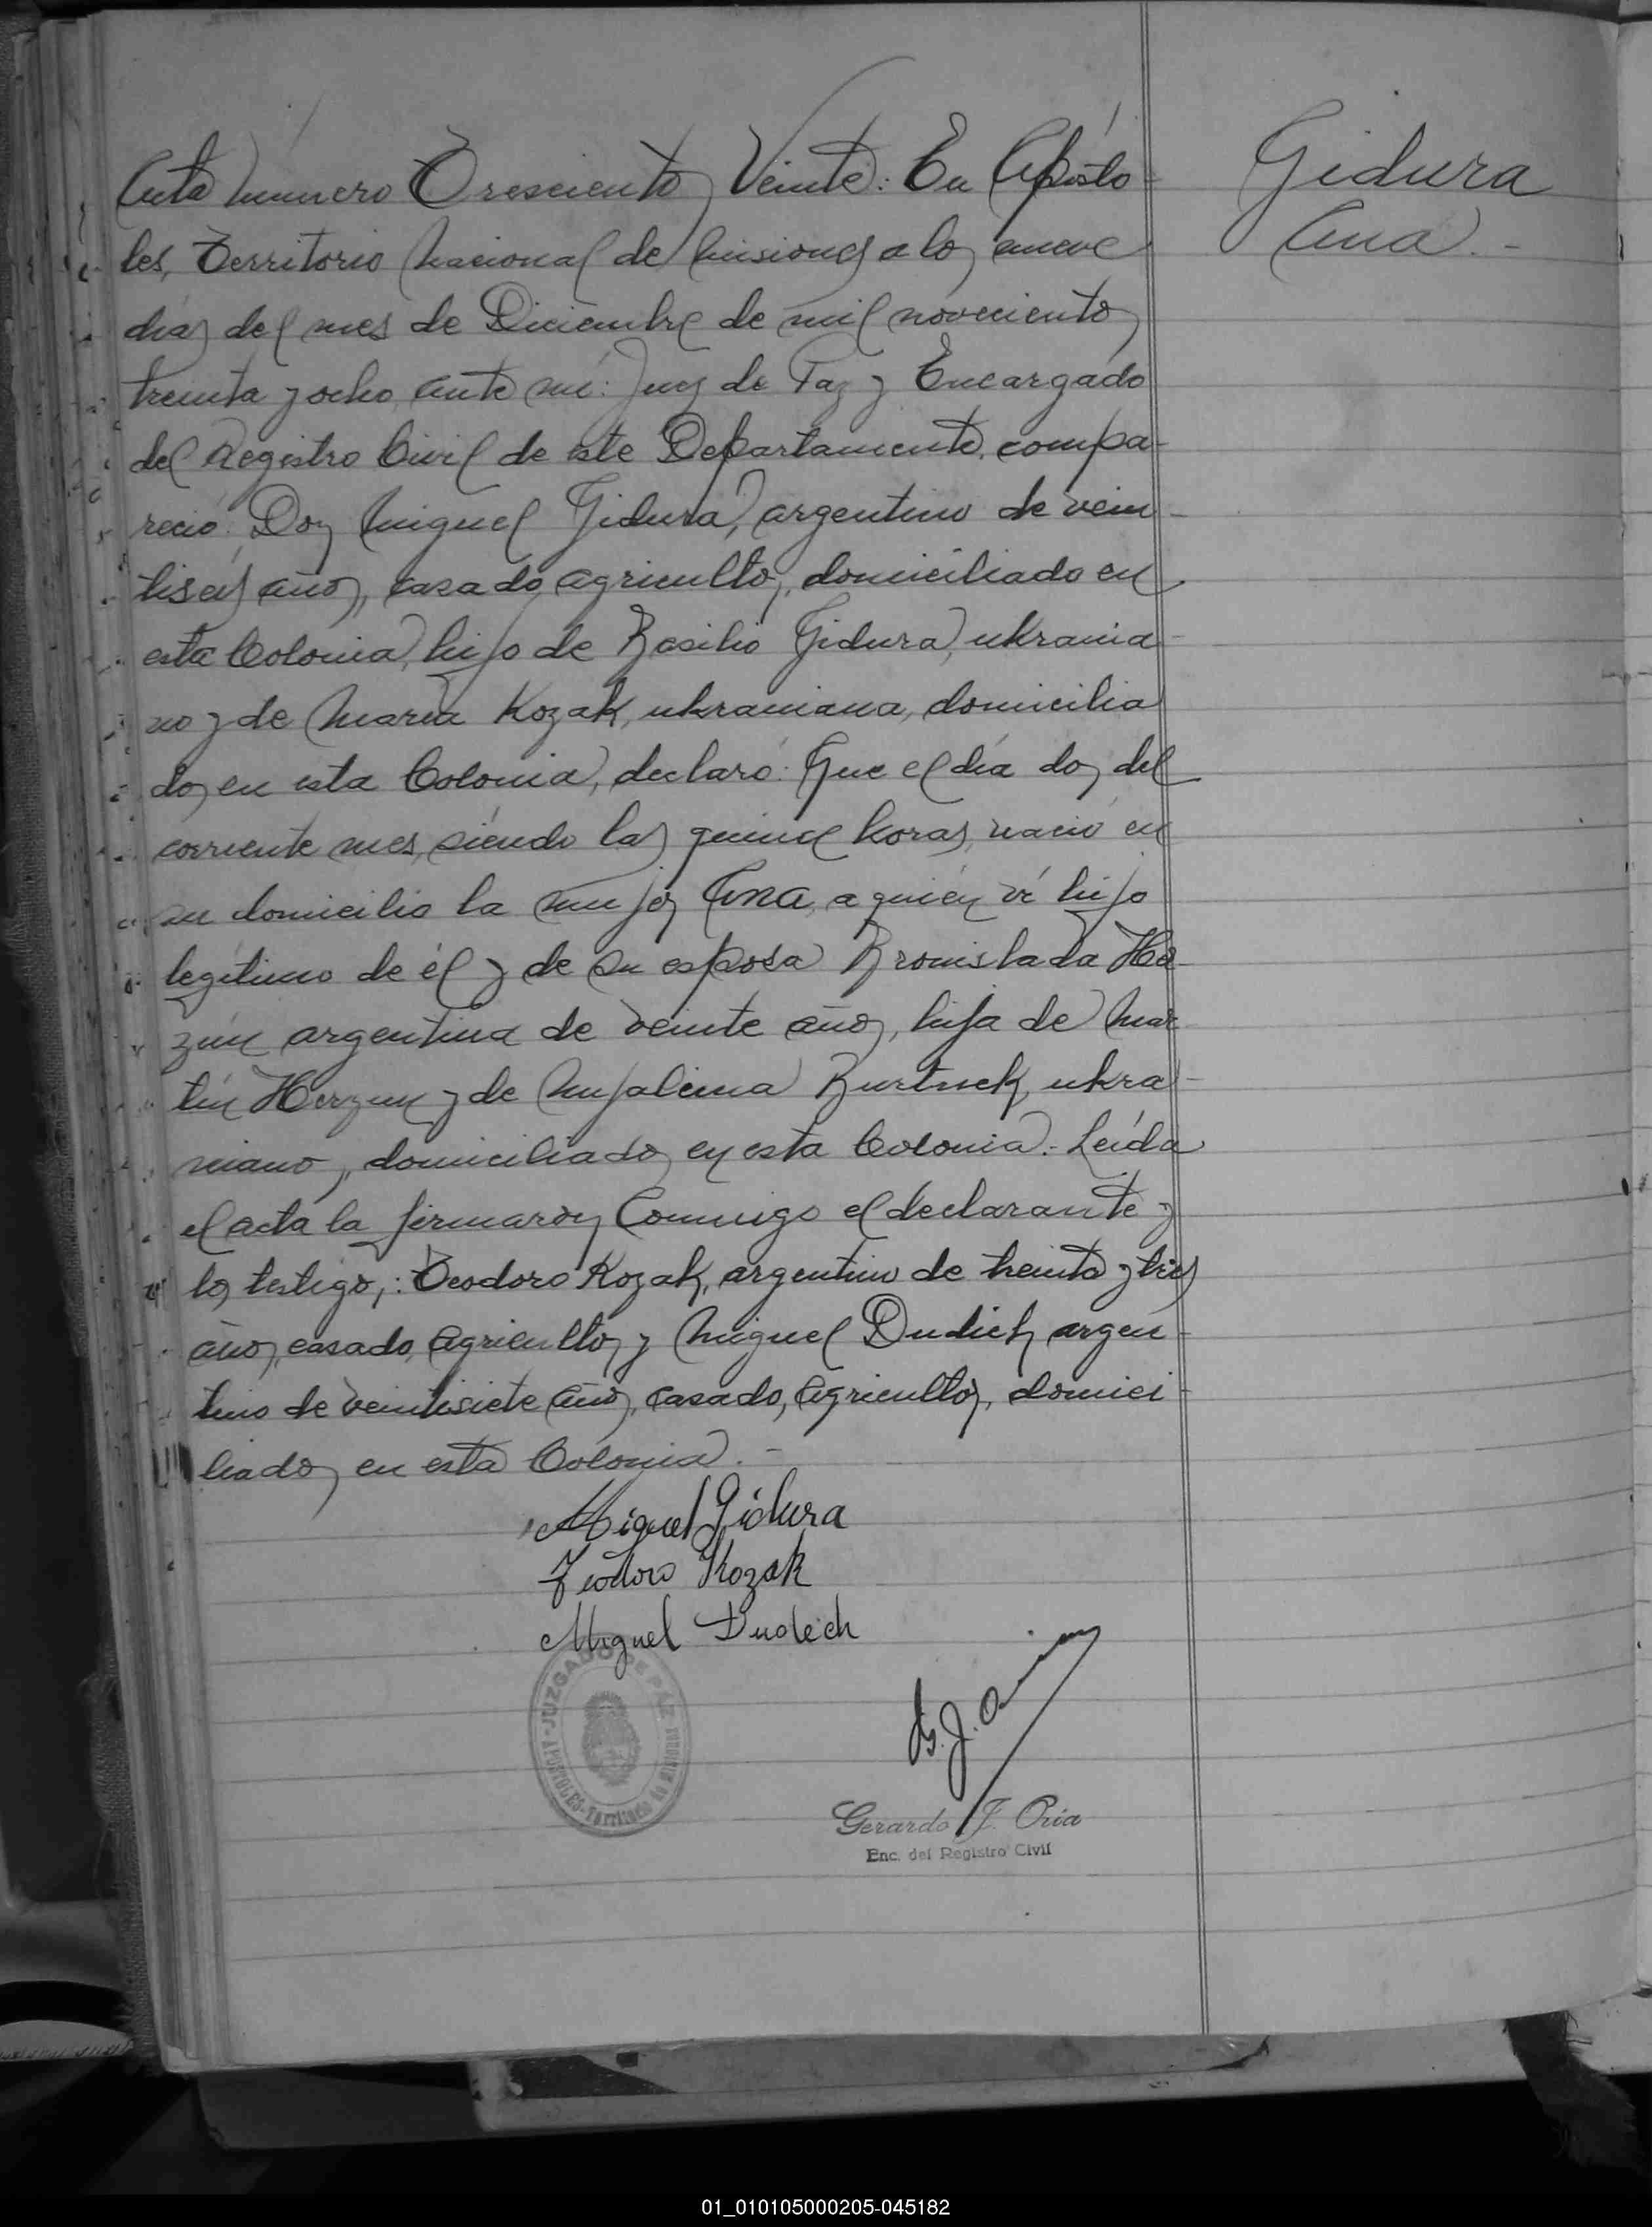 Acta número Trescientos Veinte: En Aposto-
les, Territorio Nacional de Misiones a los nueve
días del mes de Diciembre de mil novecientos
treinta y ocho, ante mí: Juez de Paz y Encargado
del Registro Civil de este Departamento, compa-
reció: Don Miguel Gidura, argentino de vein-
tiseis años, casado, agricultor, domiciliado en
esta Colonia, hijo de Basilio Gidura, ukrania-
no y de María Kozak, ukraniana, domicilia
dos en esta Colonia, declaró: Que el día dos del
corriente mes, siendo las quince horas, nació en
su domicilio la mujer Ana, a quién ví hijo
legítimo de él y de su esposa Bronislada Her
zun argentina de veinte años, hija de Mar
tín Herzun y de Burtnek, ukra-
nianos, domiciliados en esta Colonia.- Leída
el acta la firmaron Conmigo el declarante y
los testigos,: Teodoro Kozak, argentino de treinta y tres
años, casado, agricultor y Miguel Dudich, argen-
tino de veintisiete años, casado, agricultor, domici-
liados en esta Colonia.-
Gidura
Ana.-
Miguel Gidura
Teodoro Kozak
Miguel Dudich
JUZGADO DE PAZ
APOSTOLES-Territorio de Misiones
G. J. Oria
Gerardo J. Oria
Enc. del Registro Civil
01_010105000205-045182